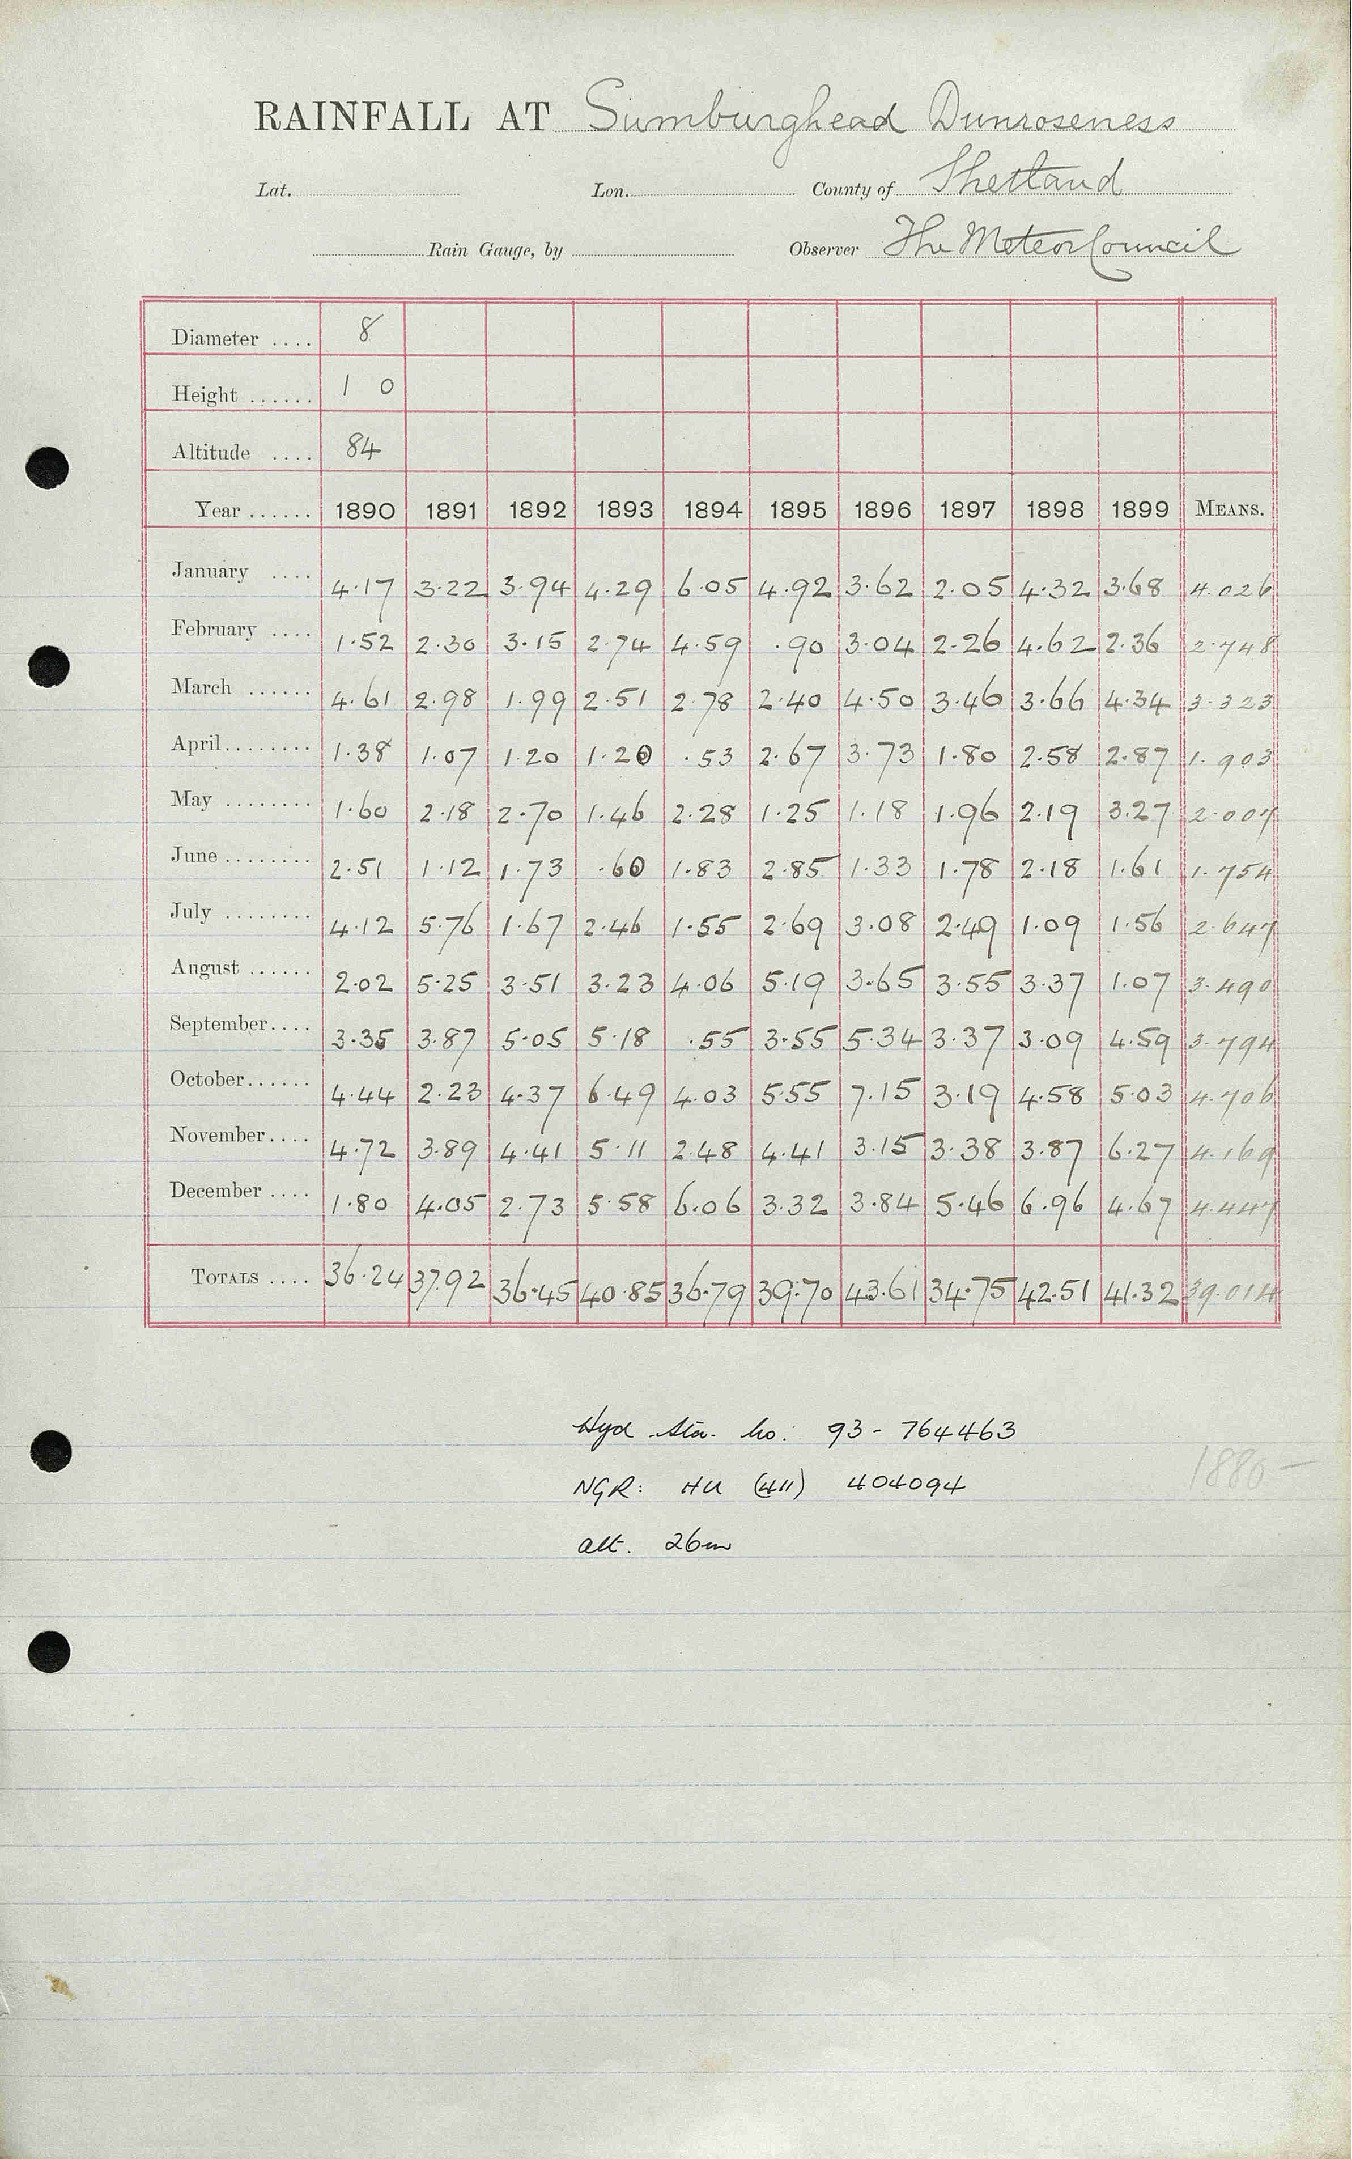 RAINFALL AT Sumburghead Dunroseness
Lat. Lon. County of Shetland
Rain Gauge, by Observer The Meteor Council
Diameter .... 8
Height ...... 1 0
Altitude .... 84
Year ...... 1890 1891 1892 1893 1894 1895 1896 1897 1898 1899 MEANS.
January .... 4.17 3.22 3.94 4.29 6.05 4.92 3.62 2.05 4.32 3.68 4.026
February .... 1.52 2.30 3.15 2.74 4.59 .90 3.04 2.26 4.62 2.36 2.748
March ...... 4.61 2.98 1.99 2.51 2.78 2.40 4.50 3.46 3.66 4.34 3.323
April ........ 1.38 1.07 1.20 1.20 .53 2.67 3.73 1.80 2.58 2.87 1.903
May ........ 1.60 2.18 2.70 1.46 2.28 1.25 1.18 1.96 2.19 3.27 2.007
June ........ 2.51 1.12 1.73 .60 1.83 2.85 1.33 1.78 2.18 1.61 1.754
July ........ 4.12 5.76 1.67 2.46 1.55 2.69 3.08 2.49 1.09 1.56 2.647
August ...... 2.02 5.25 3.51 3.23 4.06 5.19 3.65 3.55 3.37 1.07 3.490
September.... 3.35 3.87 5.05 5.18 .55 3.55 5.34 3.37 3.09 4.59 3.794
October...... 4.44 2.23 4.37 6.49 4.03 5.55 7.15 3.19 4.58 5.03 4.706
November.... 4.72 3.89 4.41 5.11 2.48 4.41 3.15 3.38 3.87 6.27 4.169
December .... 1.80 4.05 2.73 5.58 6.06 3.32 3.84 5.46 6.96 4.67 4.447
TOTALS .... 36.24 37.92 36.45 40.85 36.79 39.70 43.61 34.75 42.51 41.32 39.014
Hyd. Sta. No: 93 - 764463
NGR: HU (411) 404094
1886 -
alt. 26m